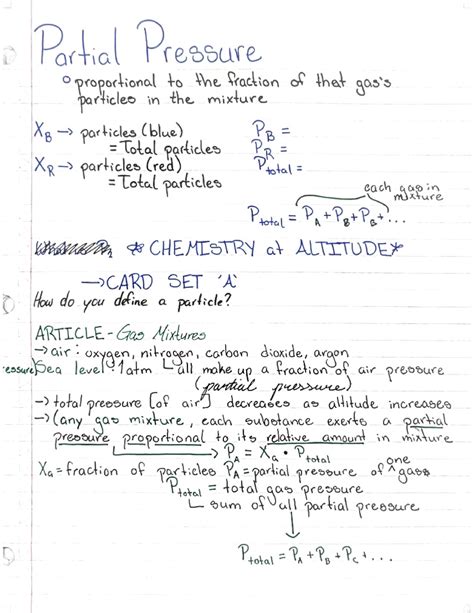 Partial Pressure
o proportional to the fraction of that gas's
particles in the mixture
X_B → particles (blue)
= Total particles
P_B =
P_R =
X_R → particles (red)
= Total particles
P_total =
each gas in
mixture
P_total = P_A + P_B + P_C + ...
* CHEMISTRY at ALTITUDE *
→ CARD SET 'A'
How do you define a particle?
ARTICLE - Gas Mixtures
→ air : oxygen, nitrogen, carbon dioxide, argon
essure) Sea level : 1atm └ all make up a fraction of air pressure
(partial pressure)
→ total pressure [of air] decreases as altitude increases
→ (any gas mixture, each substance exerts a partial
pressure proportional to its relative amount in mixture
→ P_A = X_a • P_total
X_a = fraction of particles P_A = partial pressure of one gas
P_total = total gas pressure
└ sum of all partial pressure
P_total = P_A + P_B + P_C + ...